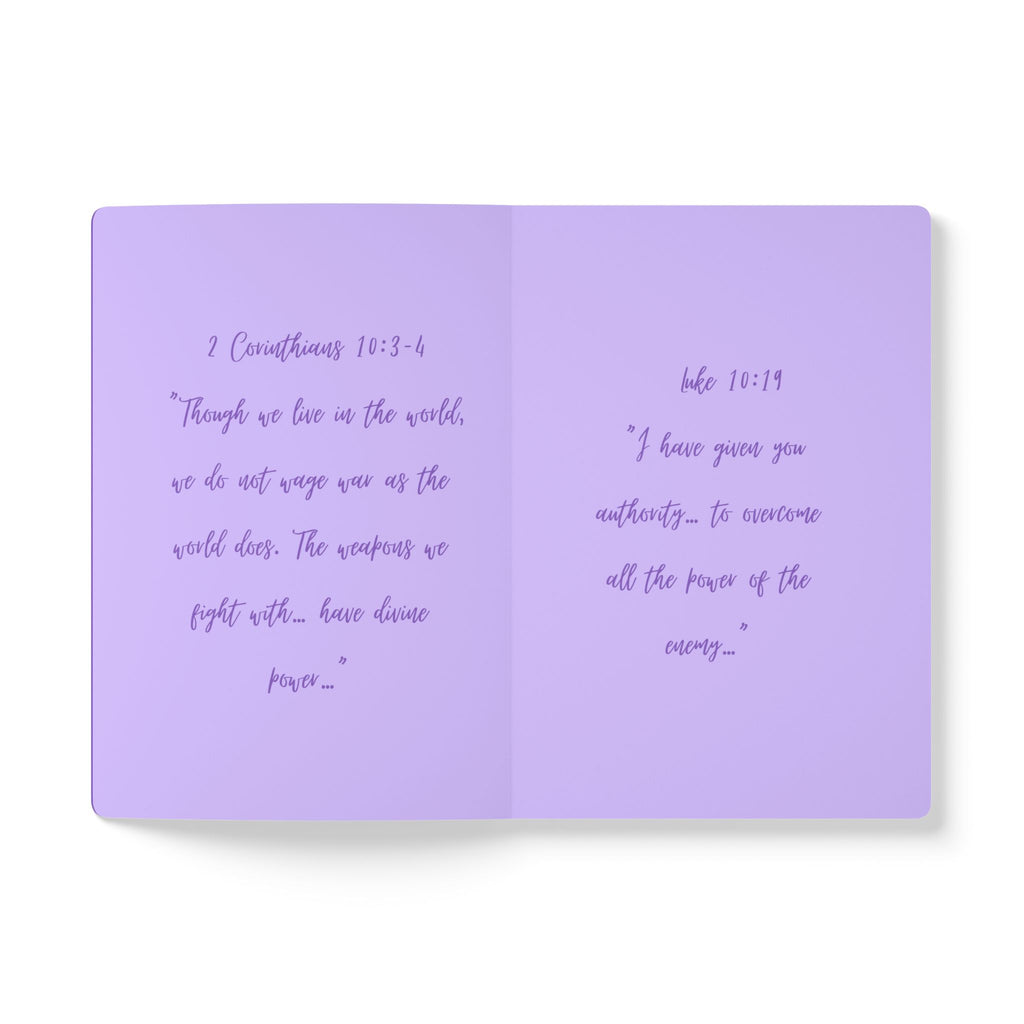 2 Corinthians 10:3-4
"Though we live in the world,
we do not wage war as the
world does. The weapons we
fight with... have divine
power..."
Luke 10:19
"I have given you
authority... to overcome
all the power of the
enemy..."